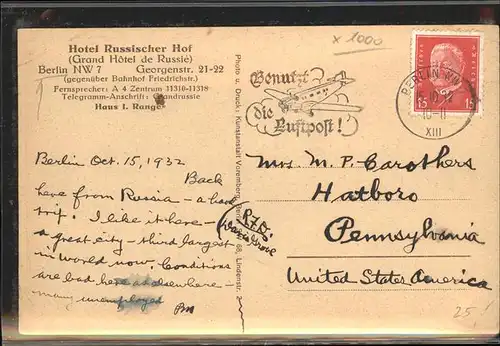 x 1000
Hotel Russischer Hof
(Grand Hôtel de Russie)
Berlin NW 7 Georgenstr. 21-22
(gegenüber Bahnhof Friedrichstr.)
Fernsprecher: A 4 Zentrum 11310-11318
Telegramm-Anschrift: Grandrussie
Haus I. Ranges
Photo u. Druck: Kunstanstalt
68, Lindenstr. 2
Benutzt
die
Luftpost!
BERLIN
XIII
15 15
Berlin Oct. 15, 1932
Back
here from Russia – a hard
trip. I like it here –
a great city – third largest
in world now. Conditions
are bad here as elsewhere –
many unemployed
PM
R.F.D.
Mrs. M. P. Carothers
Hatboro
Pennsylvania
United States America
25.-